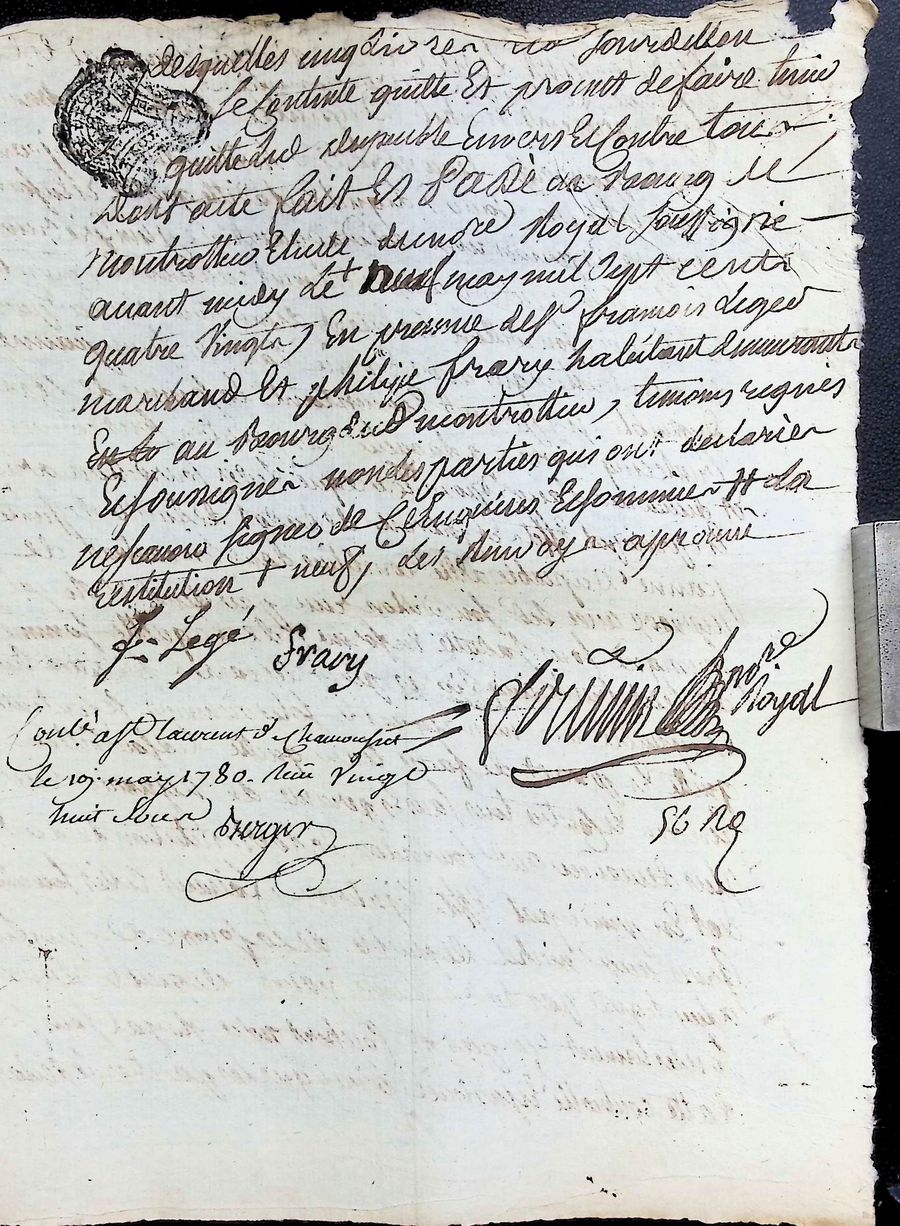 desquelles cinq livres Jourdellon
se contente quitte Et promet de faire tenir
quitte Envers Et Contre tous
Dont acte fait Et Passé au Bourg de
montrottier Etude du nore Royal soussigné
avant midy le + neuf may mil sept cents
quatre vingts, En presence de sr. francois Leger
marchand Et philipe frary habitant demeurants
au Bourg dud montrottier, temoins requis
Et soussignés non des parties qui ont declarées
ne scavoir signer de Ce Enquises Et sommées # la
restitution + neuf, des renvoys approuvé
Legé
frary
Firmin nore Royal
Conlé a st Laurent d. Chamousset
le 19. may 1780. Reçu Vingt
huit sous
Berger